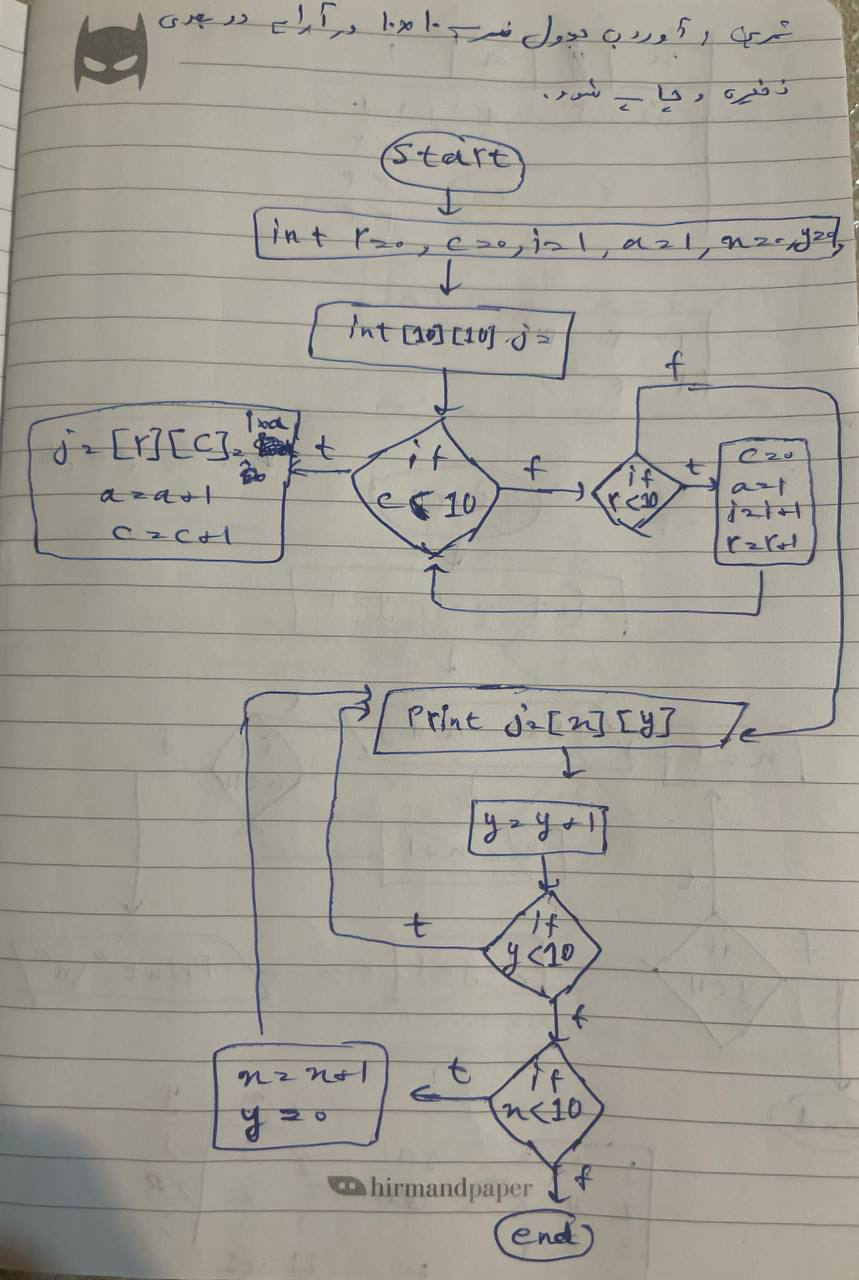 تمرین ، آوردن جدول ضرب ۱۰×۱۰ در آرایه دو بعدی
ذخیره و چاپ شود.
Start
int r=0, c=0, i=1, a=1, n=0, y=0,
int [10][10] j=
j=[r][c]= i×a
a=a+1
c=c+1
t
if
c<10
f
if
r<10
f
t
c=0
a=1
i=i+1
r=r+1
Print j=[n][y]
y=y+1
if
y<10
t
f
if
n<10
t
n=n+1
y=0
f
end
hirmandpaper